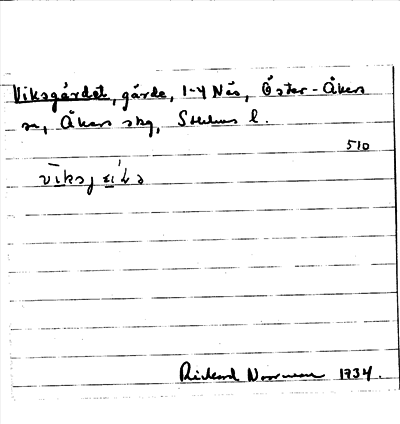 Viksgärdet, gärde, 1-4 Näs, Öster-Åkers
sn, Åkers skg, Sthlms l.
510
Rickard Norrman 1934.